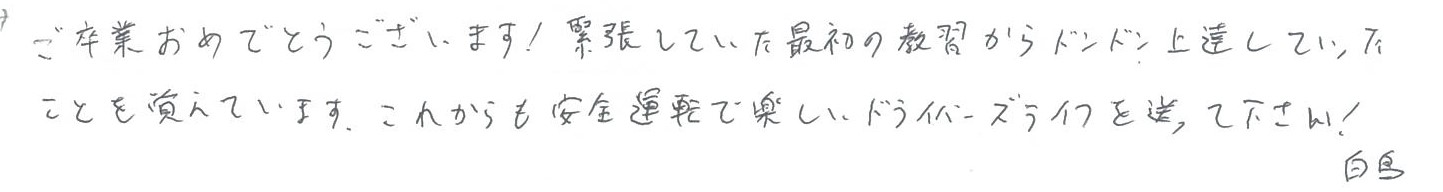 ご卒業おめでとうございます!緊張していた最初の教習からドンドン上達していった
ことを覚えています.これからも安全運転で楽しいドライバーズライフを送って下さい!
白鳥